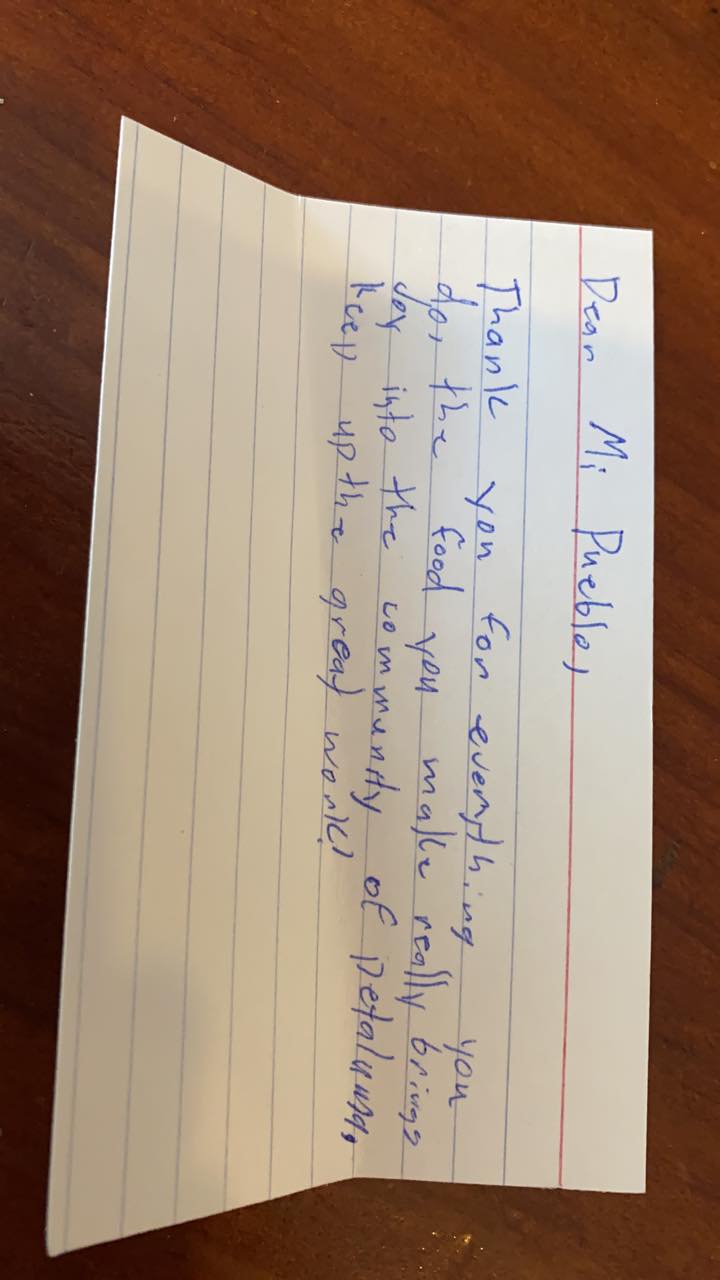 Dear Mi Pueblo,
Thank you for everything you
do, the food you make really brings
Joy into the community of Petaluma.
Keep up the great work!